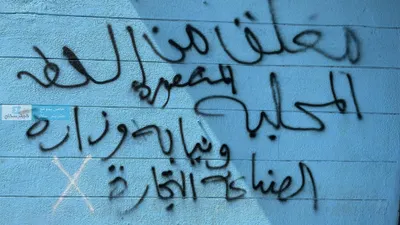 مغلق من السلطه
المحلية المنصورة
ونيابه وزارة
الصناعة التجارة